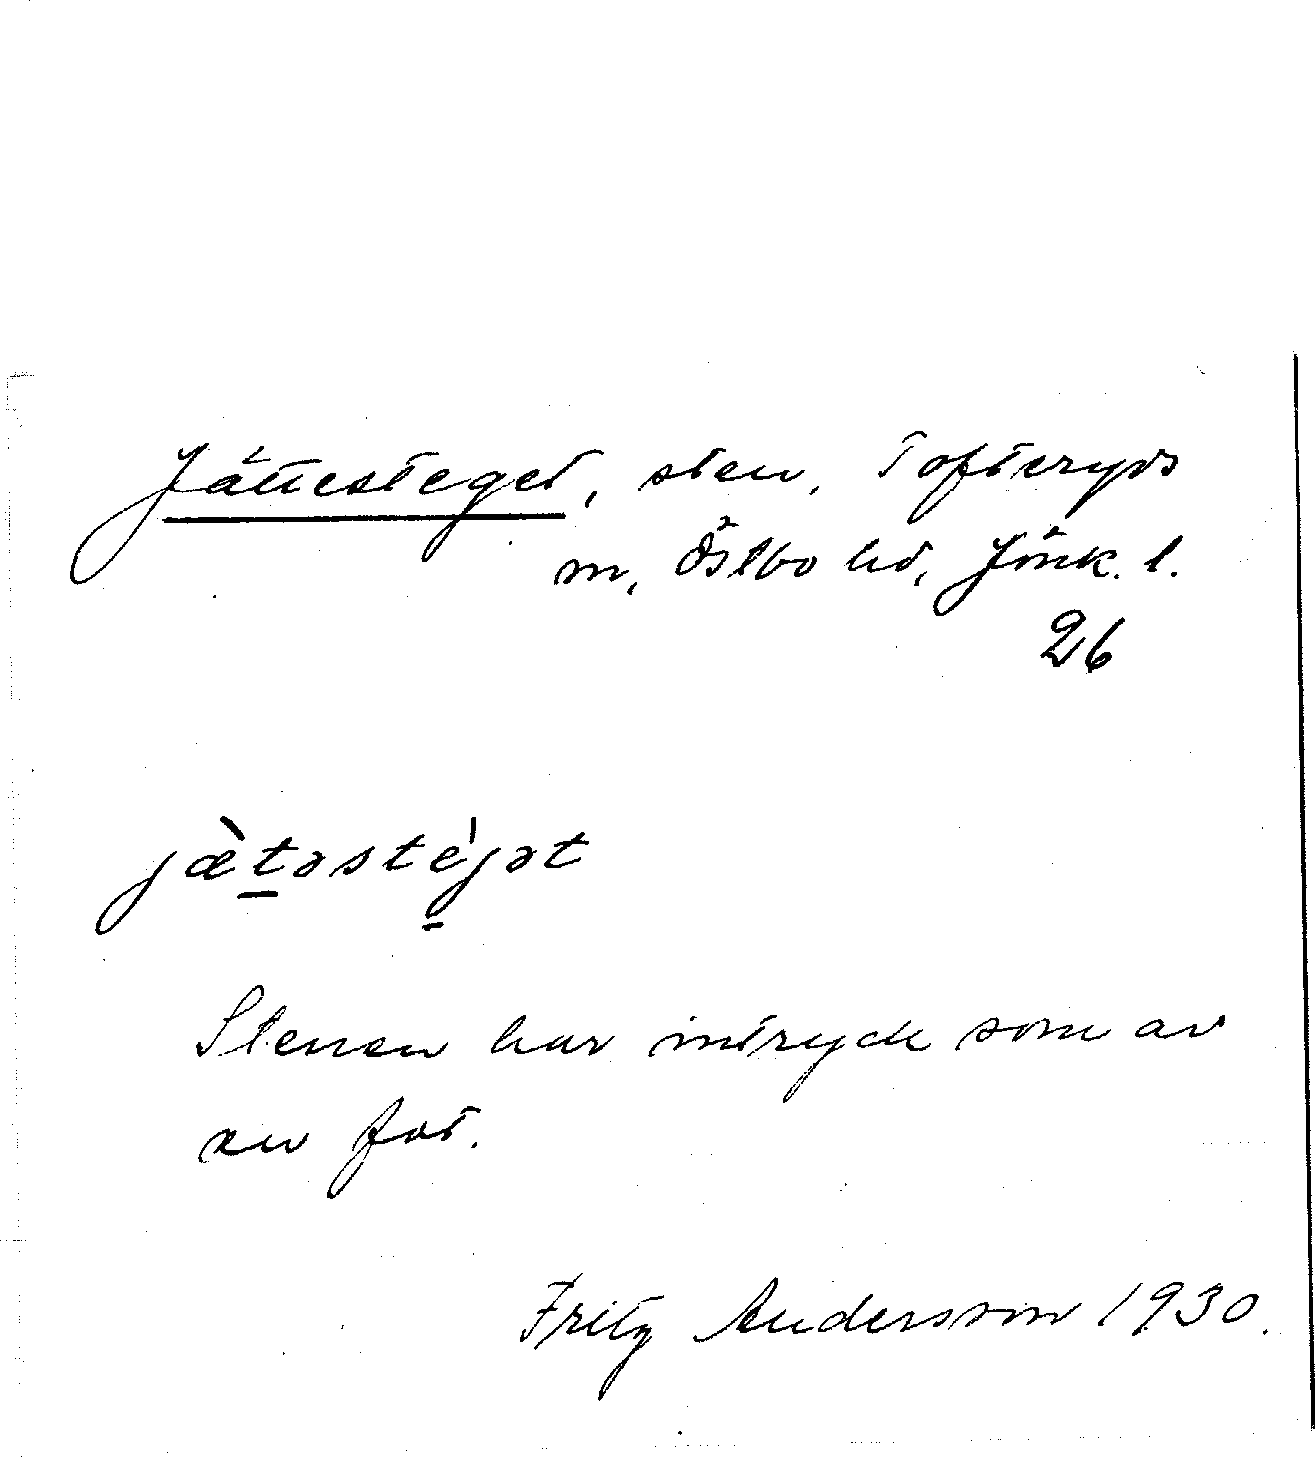 Jättesteget, sten, Tofteryds
m, Östbo hd, Jönk. l.
26
jæ̀t̲əstéj̲ət
Stenen har intryck som av
en fot.
Fritz Andersson 1930.